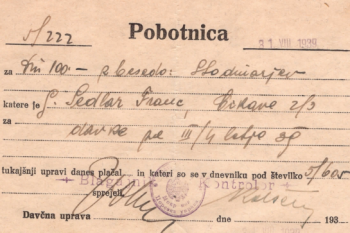 5/222
Pobotnica
31. VIII. 1939
za Din 100- z besedo: Stodinarjev
katere je g. Sedlar Franc, 2/3
za davke za III/4 39
tukajšnji upravi danes plačal in kateri so se v dnevniku pod številko 5/605
sprejeli.
Blagajnik Kontrolor
Davčna uprava dne 193